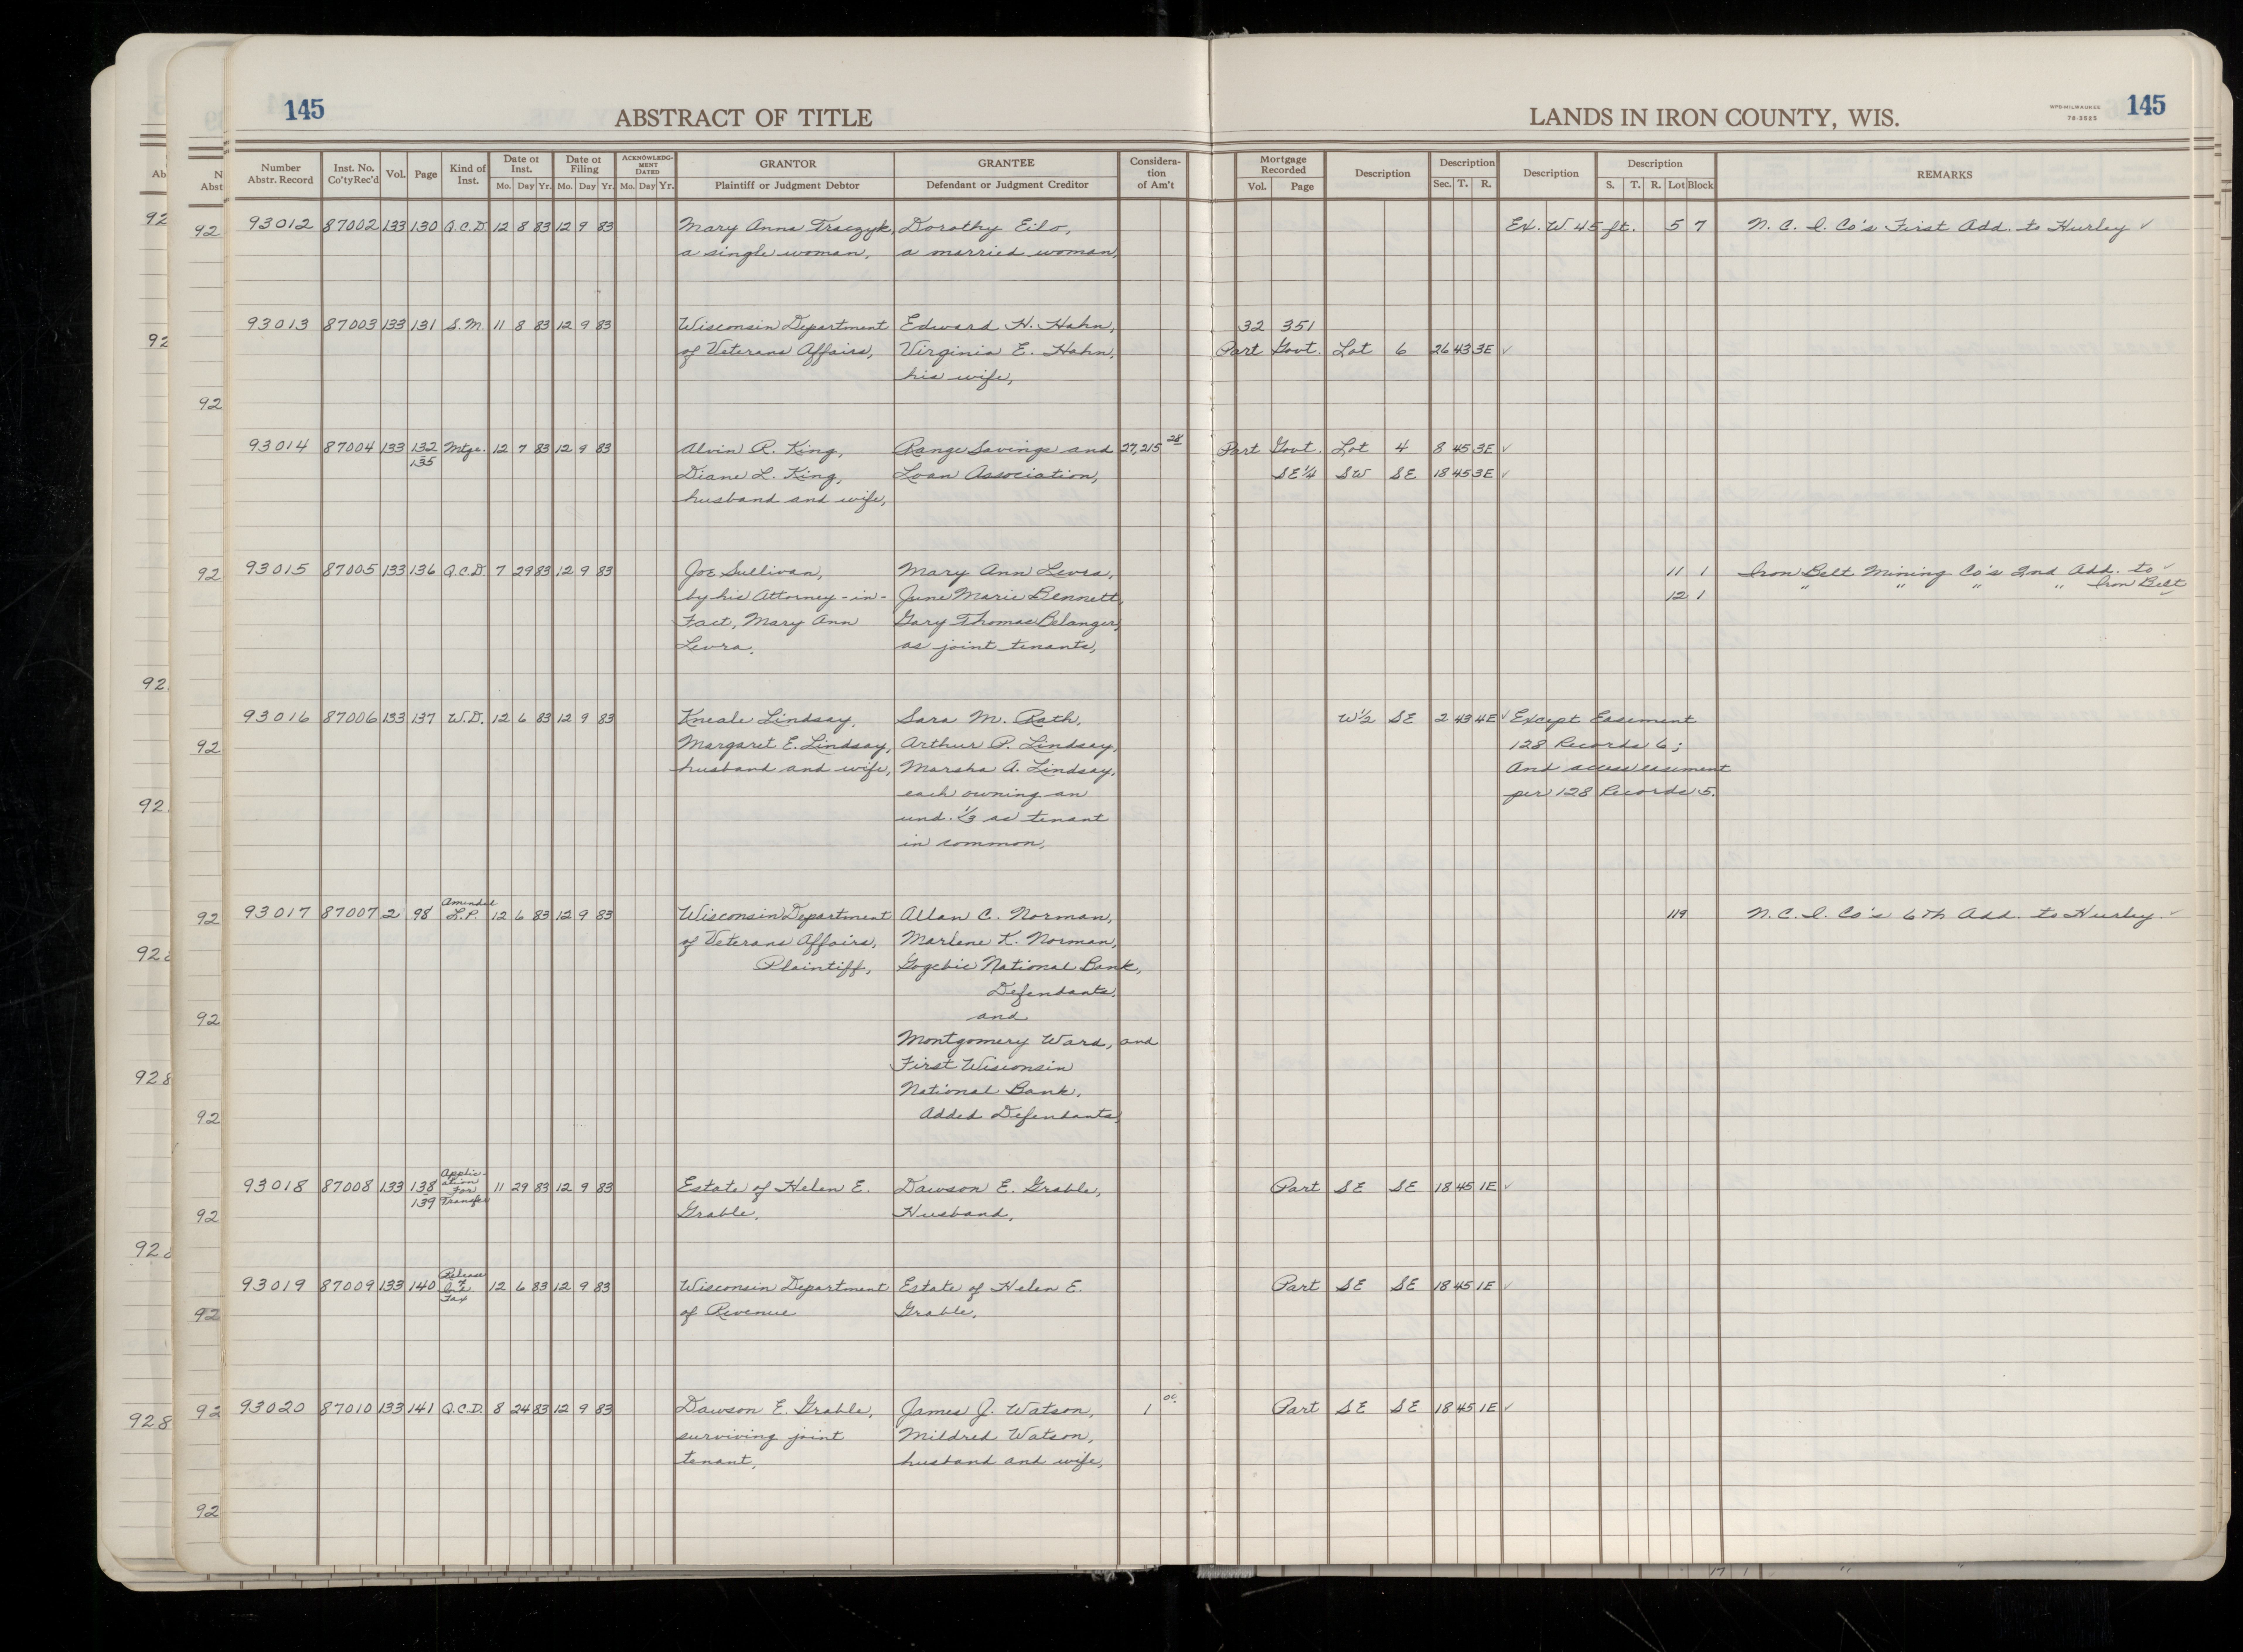 145 ABSTRACT OF TITLE LANDS IN IRON COUNTY, WIS. WPB-MILWAUKEE 78-5525 145
Number Abstr. Record Inst. No. Co'ty Rec'd Vol. Page Kind of Inst. Date of Inst. Mo. Day Yr. Date of Filing Mo. Day Yr. ACKNOWLEDGMENT DATED Mo. Day Yr. GRANTOR Plaintiff or Judgment Debtor GRANTEE Defendant or Judgment Creditor Consideration of Am't Mortgage Recorded Vol. Page Description Description Sec. T. R. Description Description S. T. R. Lot Block REMARKS
93012 87002 133 130 Q.C.D. 12 8 83 12 9 83 Mary Anna Traczyk, Dorothy Eilo, Ex. W. 45 ft. 5 7 N. C. I. Co's First Add. to Hurley ✓
a single woman, a married woman,
93013 87003 133 131 S.M. 11 8 83 12 9 83 Wisconsin Department Edward H. Hahn, 32 351
of Veterans Affairs, Virginia E. Hahn, Part Govt. Lot 6 26 43 3E ✓
his wife,
93014 87004 133 132 Mtge. 12 7 83 12 9 83 Alvin R. King, Range Savings and 27,215 28 Part Govt. Lot 4 8 45 3E ✓
135 Diane L. King, Loan Association, SE¼ SW SE 18 45 3E ✓
husband and wife,
93015 87005 133 136 Q.C.D. 7 29 83 12 9 83 Joe Sullivan, Mary Ann Levra, 11 1 Iron Belt Mining Co's 2nd Add. to ✓
by his Attorney-in- June Marie Bennett, 12 1 " " " " Iron Belt ✓
Fact, Mary Ann Gary Thomas Belanger,
Levra, as joint tenants,
93016 87006 133 137 W.D. 12 6 83 12 9 83 Kneale Lindsay, Sara M. Rath, W½ SE 2 43 4E ✓ Except Easement
Margaret E. Lindsay, Arthur P. Lindsay, 128 Records 6;
husband and wife, Marsha A. Lindsay, And access easement
each owning an per 128 Records 5.
und. ⅓ as tenant
in common,
93017 87007 2 98 Amended L.P. 12 6 83 12 9 83 Wisconsin Department Allan C. Norman, 119 N. C. I. Co's 6th Add. to Hurley ✓
of Veterans Affairs, Marlene K. Norman,
Plaintiff, Gogebic National Bank,
Defendants,
and
Montgomery Ward, and
First Wisconsin
National Bank,
Added Defendants,
93018 87008 133 138 Application For Transfer 11 29 83 12 9 83 Estate of Helen E. Dawson E. Grable, Part SE SE 18 45 1E ✓
139 Grable, Husband,
93019 87009 133 140 Release of Tax 12 6 83 12 9 83 Wisconsin Department Estate of Helen E. Part SE SE 18 45 1E ✓
of Revenue Grable,
93020 87010 133 141 Q.C.D. 8 24 83 12 9 83 Dawson E. Grable, James J. Watson, 1 00 Part SE SE 18 45 1E ✓
surviving joint Mildred Watson,
tenant, husband and wife,